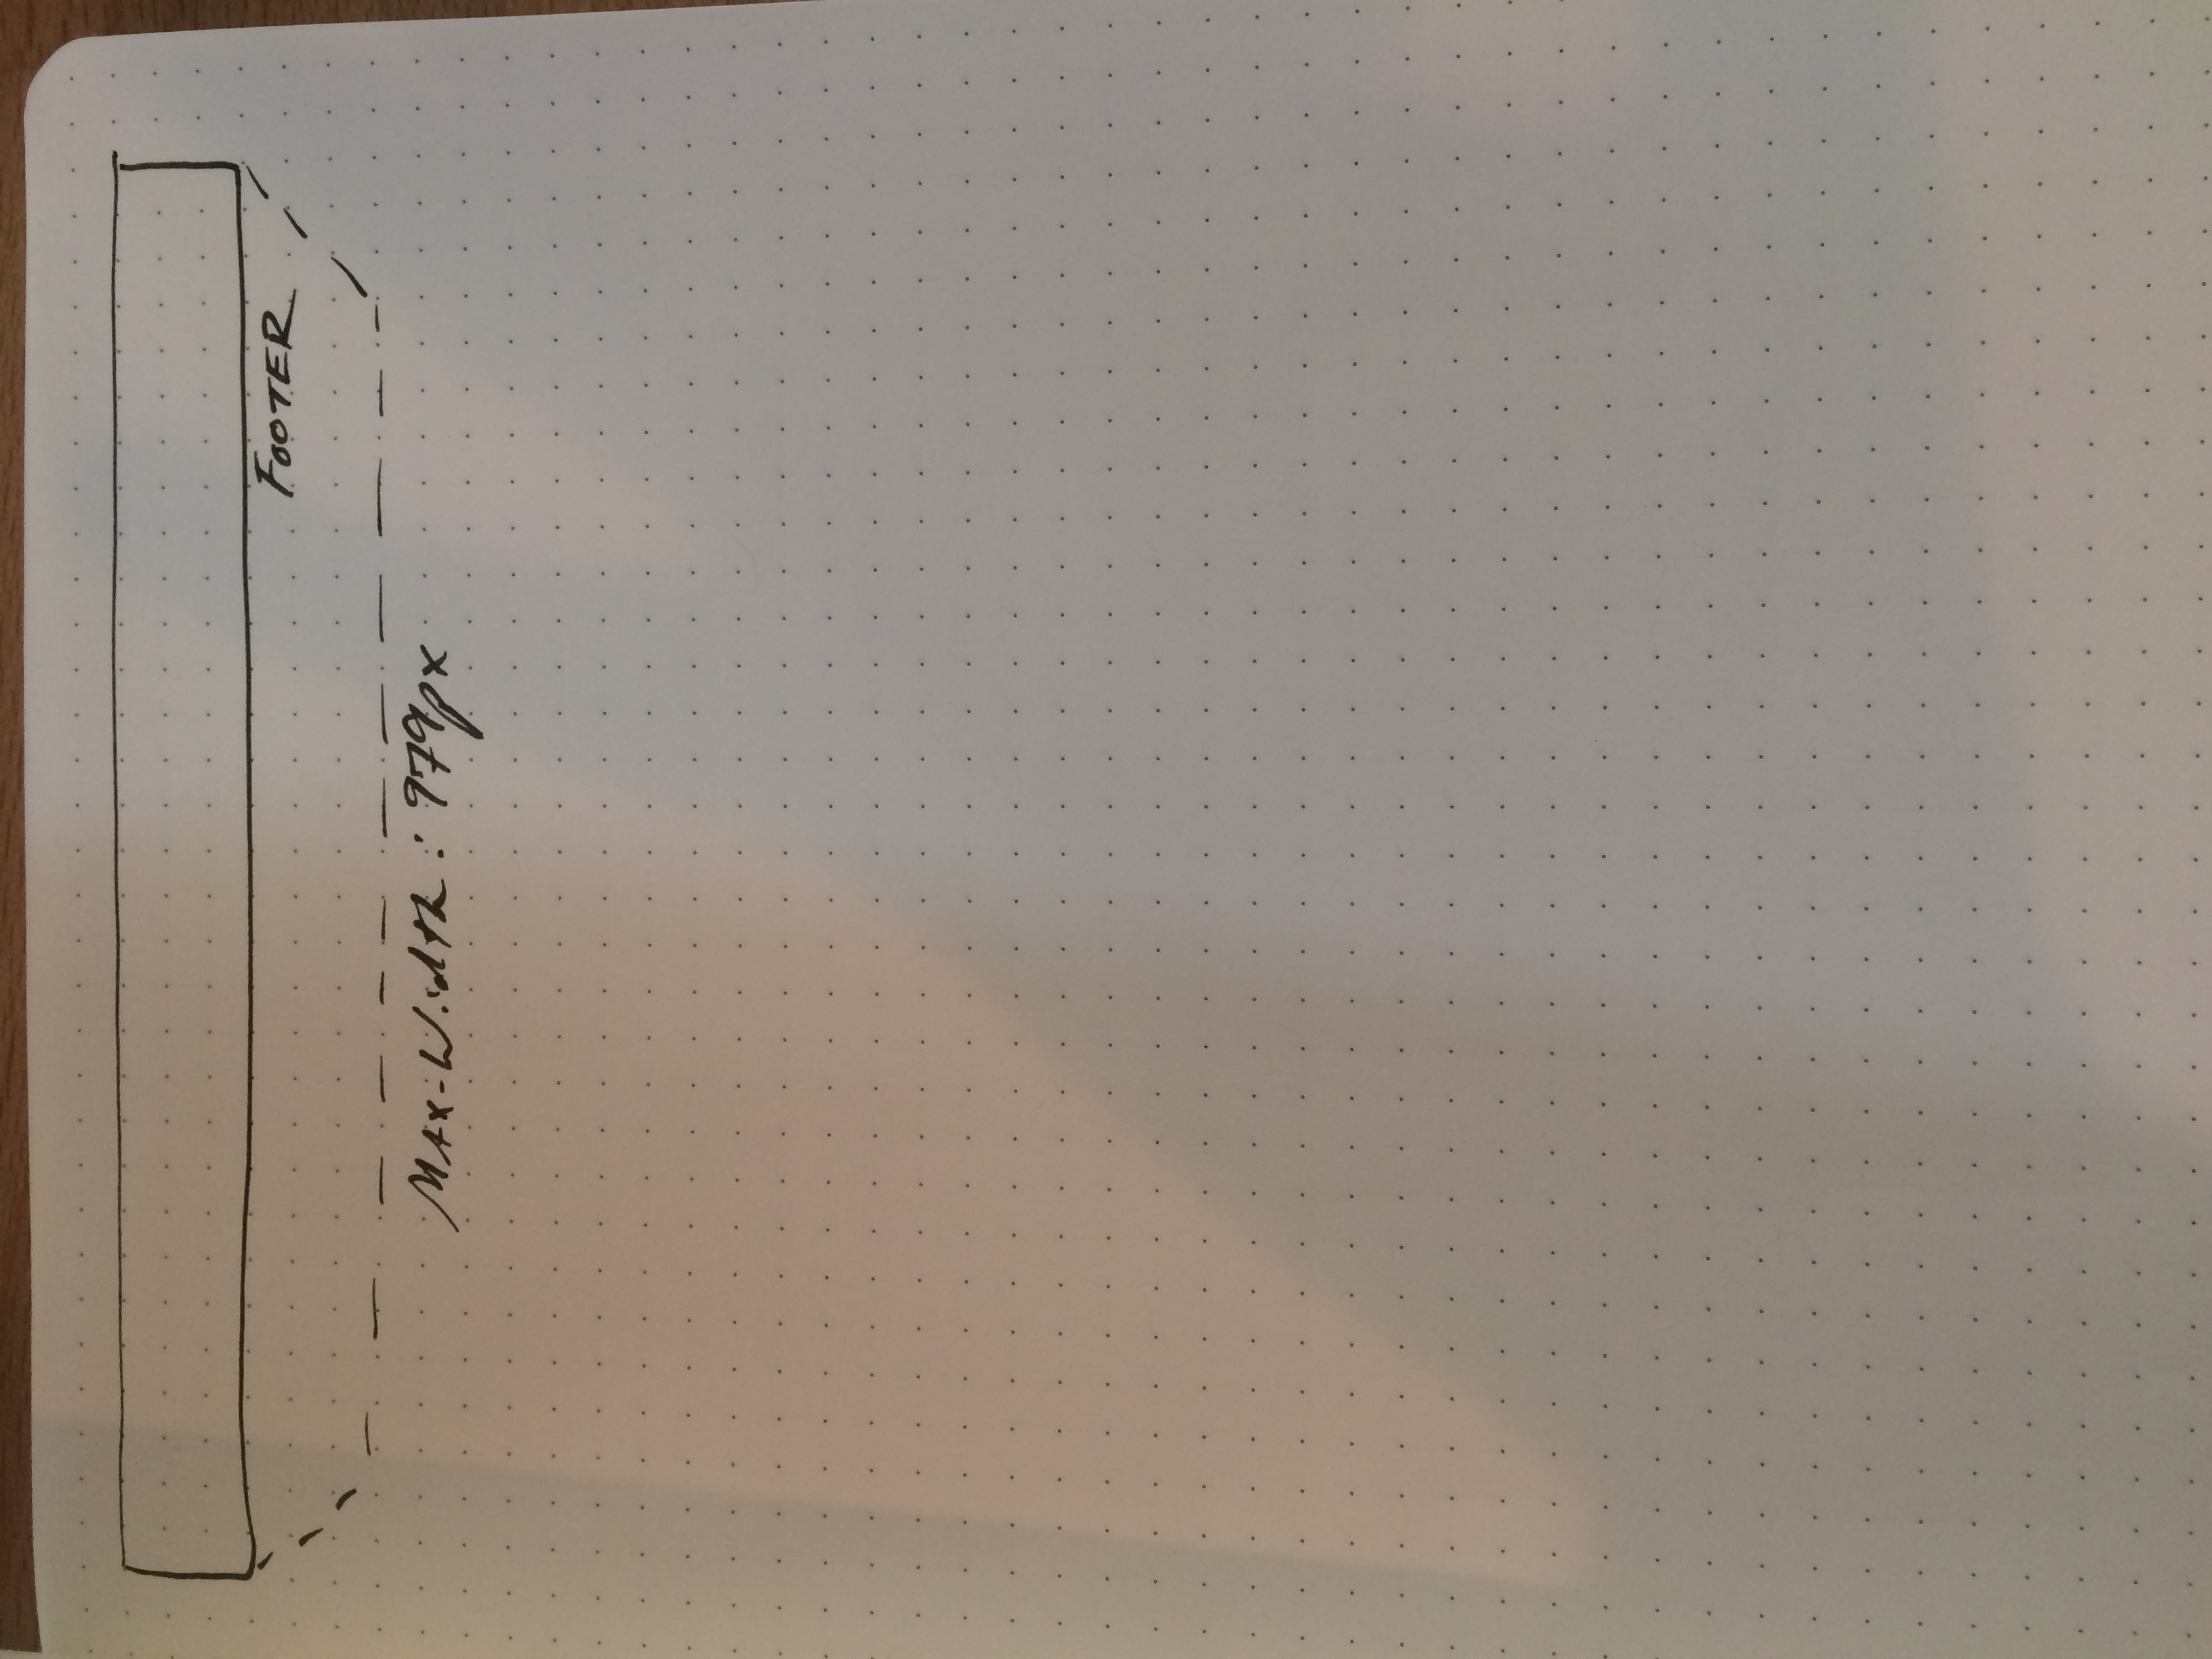 FOOTER
MAX-Width: 979px